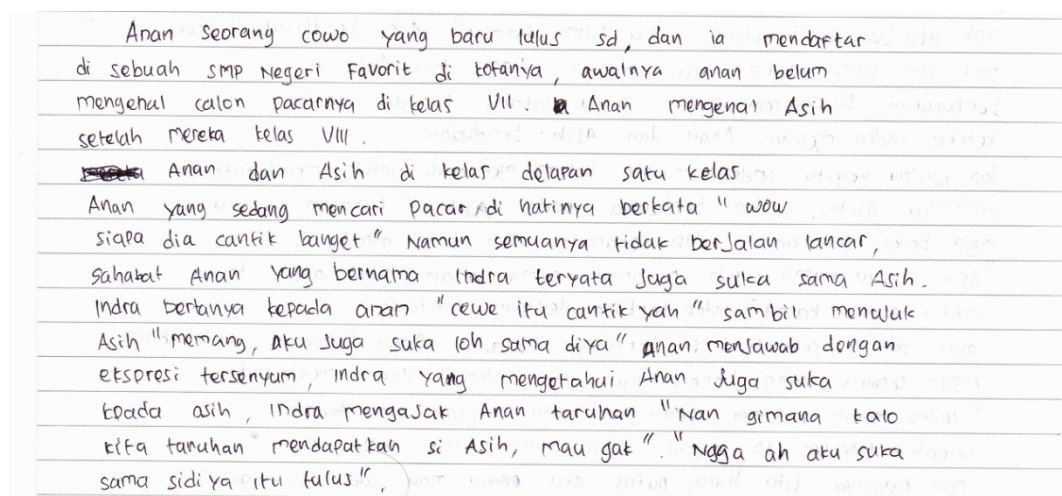 Anan seorang cowo yang baru lulus sd, dan ia mendaftar
di sebuah SMP Negeri Favorit di kotanya, awalnya anan belum
mengenal calon pacarnya di kelas VII. Anan mengenal Asih
setelah mereka kelas VIII.
Anan dan Asih di kelas delapan satu kelas
Anan yang sedang mencari pacar di hatinya berkata "wow
siapa dia cantik banget" Namun semuanya tidak berjalan lancar,
sahabat Anan yang bernama Indra teryata juga suka sama Asih.
Indra bertanya kepada anan "cewe itu cantik yah" sambil menujuk
Asih "memang, aku juga suka loh sama diya" Anan menjawab dengan
ekspresi tersenyum, Indra yang mengetahui Anan juga suka
kpada asih, Indra mengajak Anan taruhan "Nan gimana kalo
kita taruhan mendapatkan si Asih, mau gak". "Ngga ah aku suka
sama sidiya itu tulus".